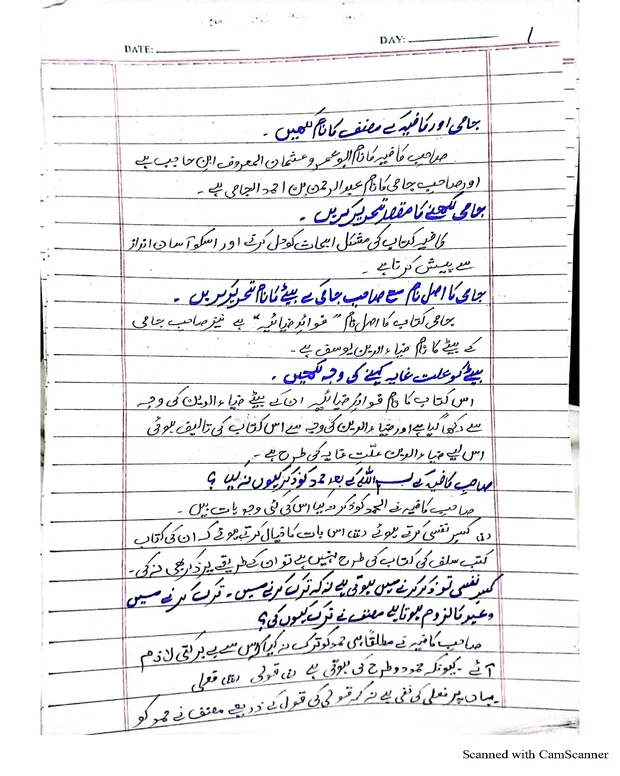 DATE: DAY: 1
جامی اور کافیہ کے مصنف کا نام لکھیں ۔
صاحب کافیہ کا نام ابو عمرو عثمان المعروف ابن حاجب ہے
اور صاحب جامی کا نام عبد الرحمن بن احمد الجامی ہے ۔
جامی لکھنے کا مقصد تحریر کریں ۔
کافیہ کتاب کی مشکل ابحاث کو حل کرتے اور اسکو آسان انداز
سے پیش کرتا ہے ۔
جامی کا اصل نام مع صاحب جامی کے بیٹے کا نام تحریر کریں ۔
جامی کتاب کا اصل نام "فوائد ضیائیہ" ہے نیز صاحب جامی
کے بیٹے کا نام ضیاء الدین یوسف ہے ۔
بیٹے کو علت غایہ کہنے کی وجہ لکھیں ۔
اس کتاب کا نام فوائد ضیائیہ ان کے بیٹے ضیاء الدین کی وجہ
سے رکھا گیا ہے اور ضیاء الدین کی وجہ سے اس کتاب کی تالیف ہوئی
اس لیے ضیاء الدین علّتِ غایہ کی طرح ہے ۔
صاحب کافیہ نے بسم اللہ کے بعد حمد کو ذکر کیوں نہ کیا ؟
صاحب کافیہ نے الحمد کو ذکر نہ کیا اس کی کئی وجوہات ہیں ۔
(۱) کسر نفسی کرتے ہوئے (۲) اس بات کا خیال کرتے ہوئے کہ ان کی کتاب
کتب سلف کی کتاب کی طرح نہیں ہے تو ان کے طریقے پر ذکر بھی نہ کی ۔
کسر نفسی تو ذکر کرنے میں ہوتی ہے نہ کہ ترک کرنے میں ۔ ترک کرنے میں
وعید کا لزوم ہوتا ہے مصنف نے ترک کیوں کی ؟
صاحب کافیہ نے مطلقاً ہی حمد کو ترک نہ کیا کہ اس سے بے برکتی لازم
آئے ۔ کیونکہ حمد دو طرح کی ہوتی ہے (۱) قولی (۲) فعلی
یہاں پر فعلی کی نفی ہے نہ کہ قولی کی قول کے ذریعے مصنف نے حمد کو
Scanned with CamScanner